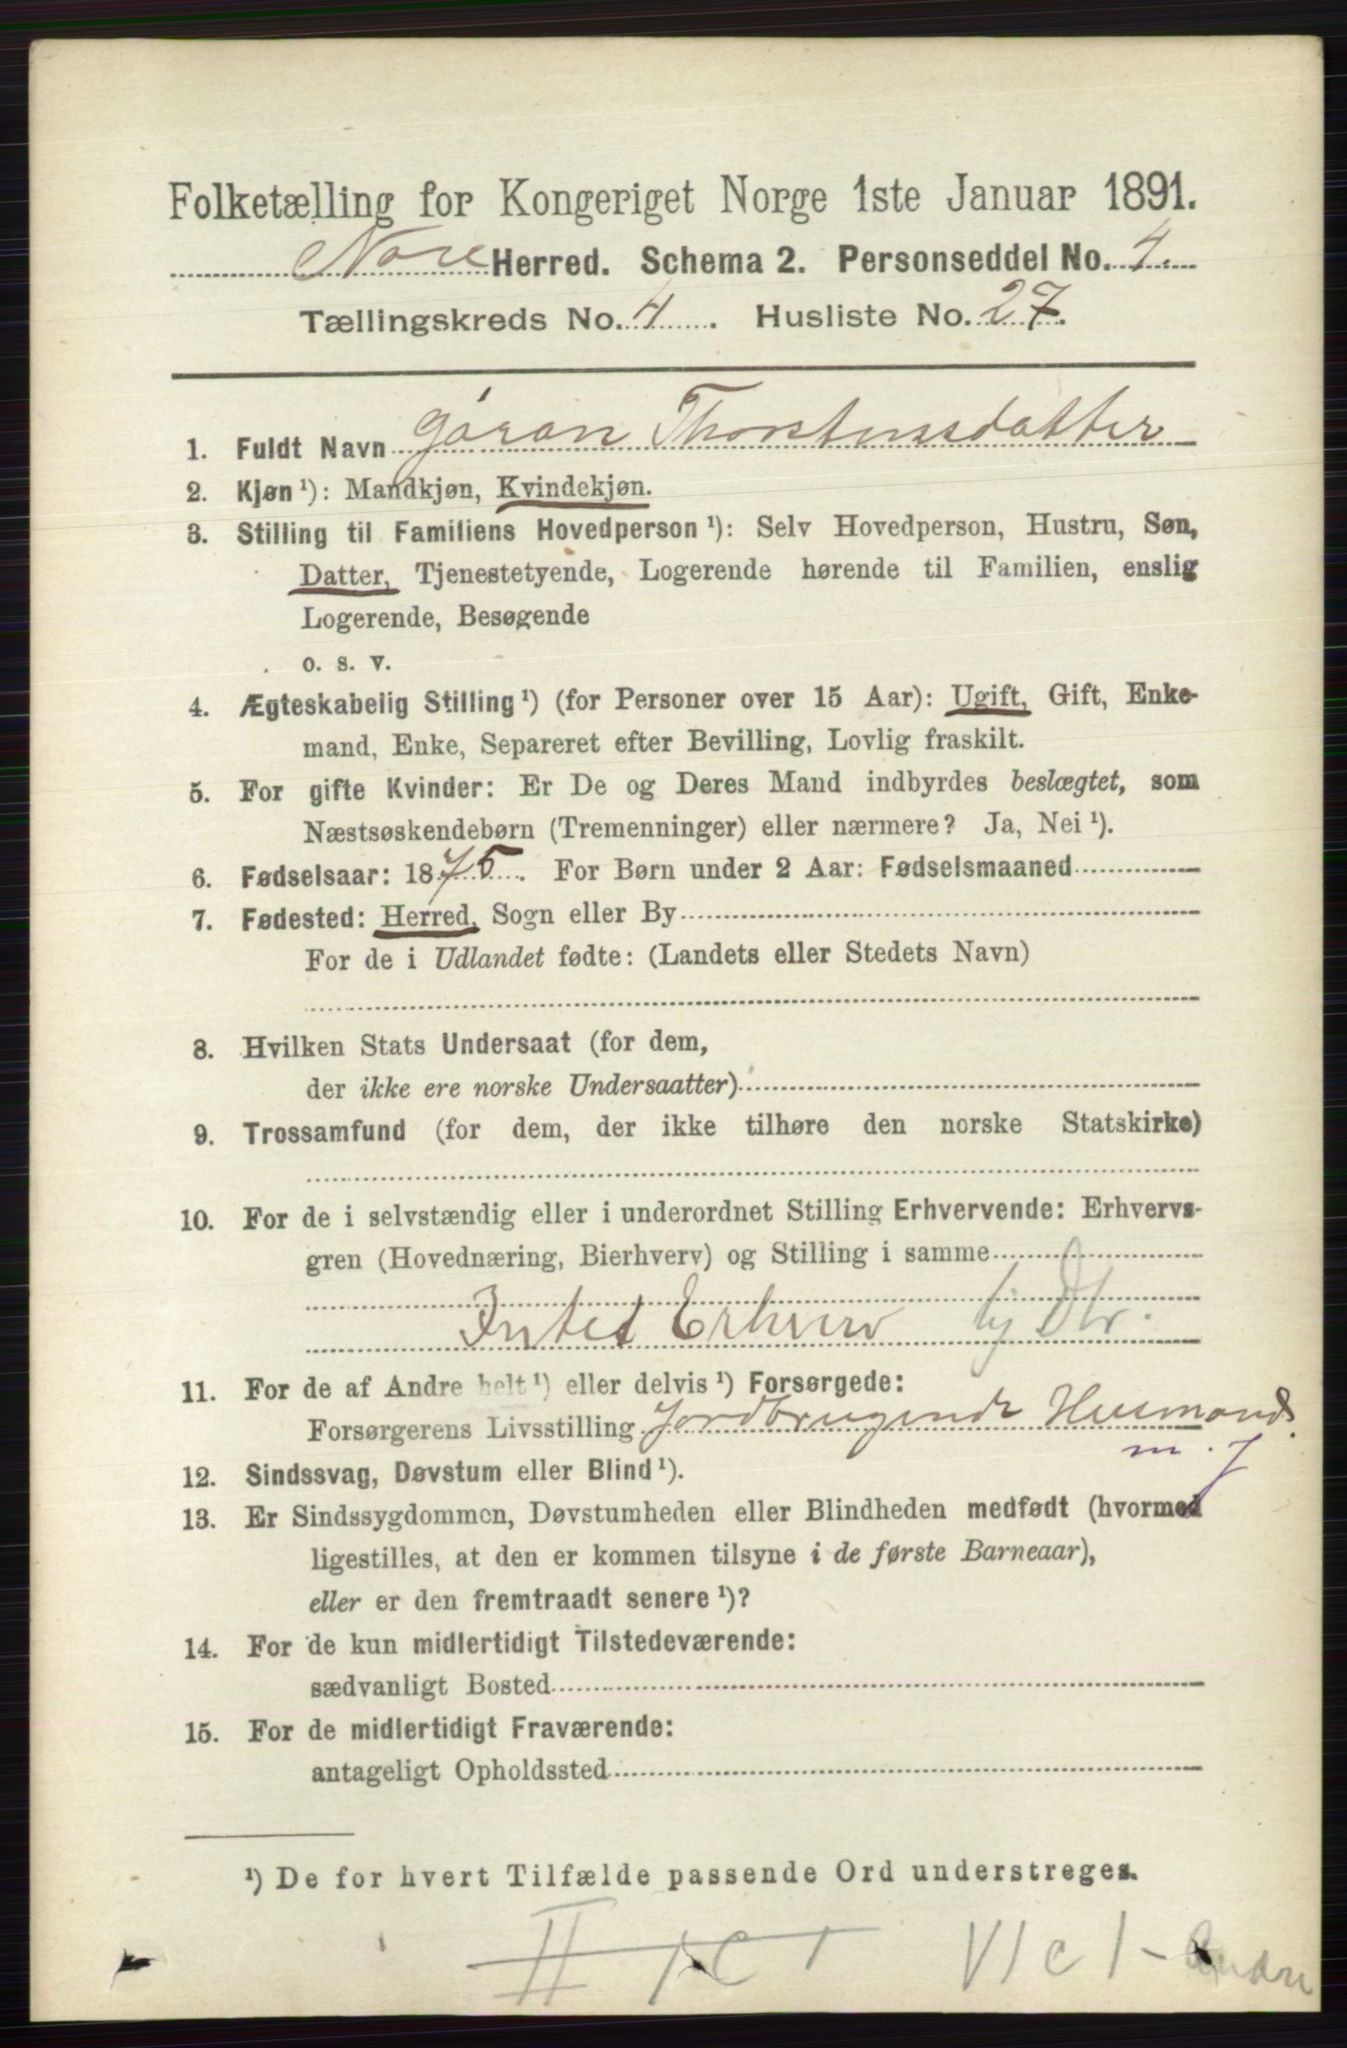 Folketælling for Kongeriget Norge 1ste Januar 1891.
Nore Herred. Schema 2. Personseddel No. 4.
Tællingskreds No. 4. Husliste No. 27.
1. Fuldt Navn Gøran Thorstensdatter
2. Kjøn ¹): Mandkjøn, Kvindekjøn.
3. Stilling til Familiens Hovedperson ¹): Selv Hovedperson, Hustru, Søn,
Datter, Tjenestetyende, Logerende hørende til Familien, enslig
Logerende, Besøgende
o. s. v.
4. Ægteskabelig Stilling ¹) (for Personer over 15 Aar): Ugift, Gift, Enke-
mand, Enke, Separeret efter Bevilling, Lovlig fraskilt.
5. For gifte Kvinder: Er De og Deres Mand indbyrdes beslægtet, som
Næstsøskendebørn (Tremenninger) eller nærmere? Ja, Nei ¹).
6. Fødselsaar: 1875. For Børn under 2 Aar: Fødselsmaaned
7. Fødested: Herred, Sogn eller By
For de i Udlandet fødte: (Landets eller Stedets Navn)
8. Hvilken Stats Undersaat (for dem,
der ikke ere norske Undersaatter)
9. Trossamfund (for dem, der ikke tilhøre den norske Statskirke)
10. For de i selvstændig eller i underordnet Stilling Erhvervende: Erhvervs-
gren (Hovednæring, Bierhverv) og Stilling i samme
Intet Erhverv hj Dtr.
11. For de af Andre helt ¹) eller delvis ¹) Forsørgede:
Forsørgerens Livsstilling Jordbrugende Husmand.
m. J
12. Sindssvag, Døvstum eller Blind ¹).
13. Er Sindssygdommen, Døvstumheden eller Blindheden medfødt (hvormed
ligestilles, at den er kommen tilsyne i de første Barneaar),
eller er den fremtraadt senere ¹)?
14. For de kun midlertidigt Tilstedeværende:
sædvanligt Bosted
15. For de midlertidigt Fraværende:
antageligt Opholdssted
¹) De for hvert Tilfælde passende Ord understreges.
II 1c1 VIc1-